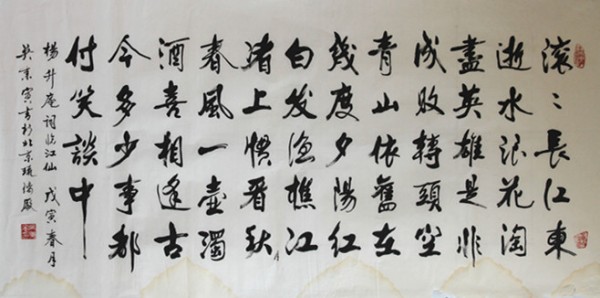 滚〻長江東
逝水浪花淘
盡英雄是非
成敗轉頭空
青山依舊在
幾度夕陽红
白发渔樵江
渚上惯看秋
春風一壶濁
酒喜相逢古
今多少事都
付笑談中
楊升庵詞临江仙 戊寅春月
寅书於北京琉璃厰